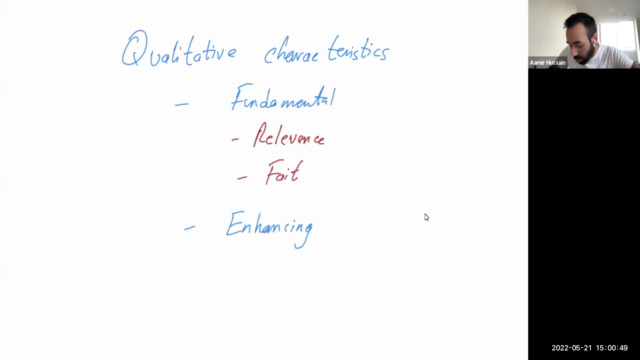 Qualitative characteristics
- Fundamental
- Relevance
- Fait
- Enhancing
Aamir Hussain
2022-05-21 15:00:49